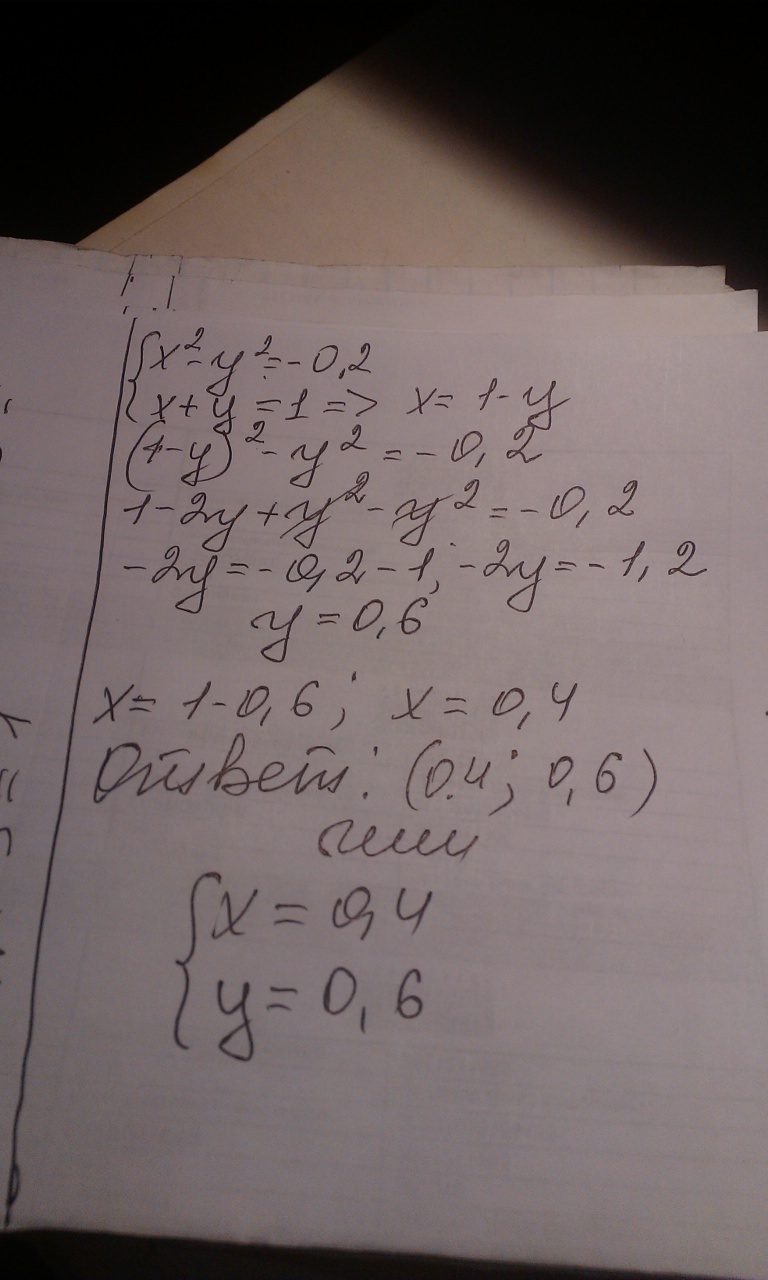 {x²-y²=-0,2
x+y=1=> x=1-y
(1-y)²-y²=-0,2
1-2y+y²-y²=-0,2
-2y=-0,2-1; -2y=-1,2
y=0,6
x=1-0,6; x=0,4
Ответ: (0.4; 0,6)
или
{x=0,4
y=0,6